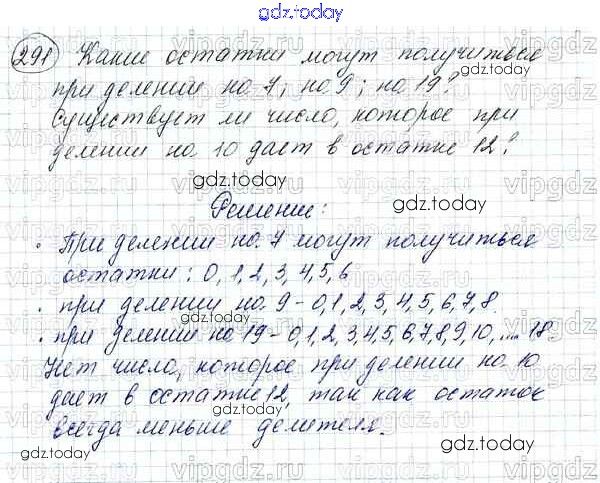 gdz.today
291 Какие остатки могут получиться
при делении на 7; на 9; на 19?
gdz.today
Существует ли число, которое при
делении на 10 дает в остатке 12?
gdz.today
Решение:
gdz.today
• При делении на 7 могут получиться
остатки: 0, 1, 2, 3, 4, 5, 6
• при делении на 9 - 0, 1, 2, 3, 4, 5, 6, 7, 8.
gdz.today
gdz.today
• при делении на 19 - 0, 1, 2, 3, 4, 5, 6, 7, 8, 9, 10, .... 18
Нет число, которое при делении на 10
дает в остатке 12, так как остаток
gdz.today
всегда меньше делителя.
gdz.today
vipgdz.ru